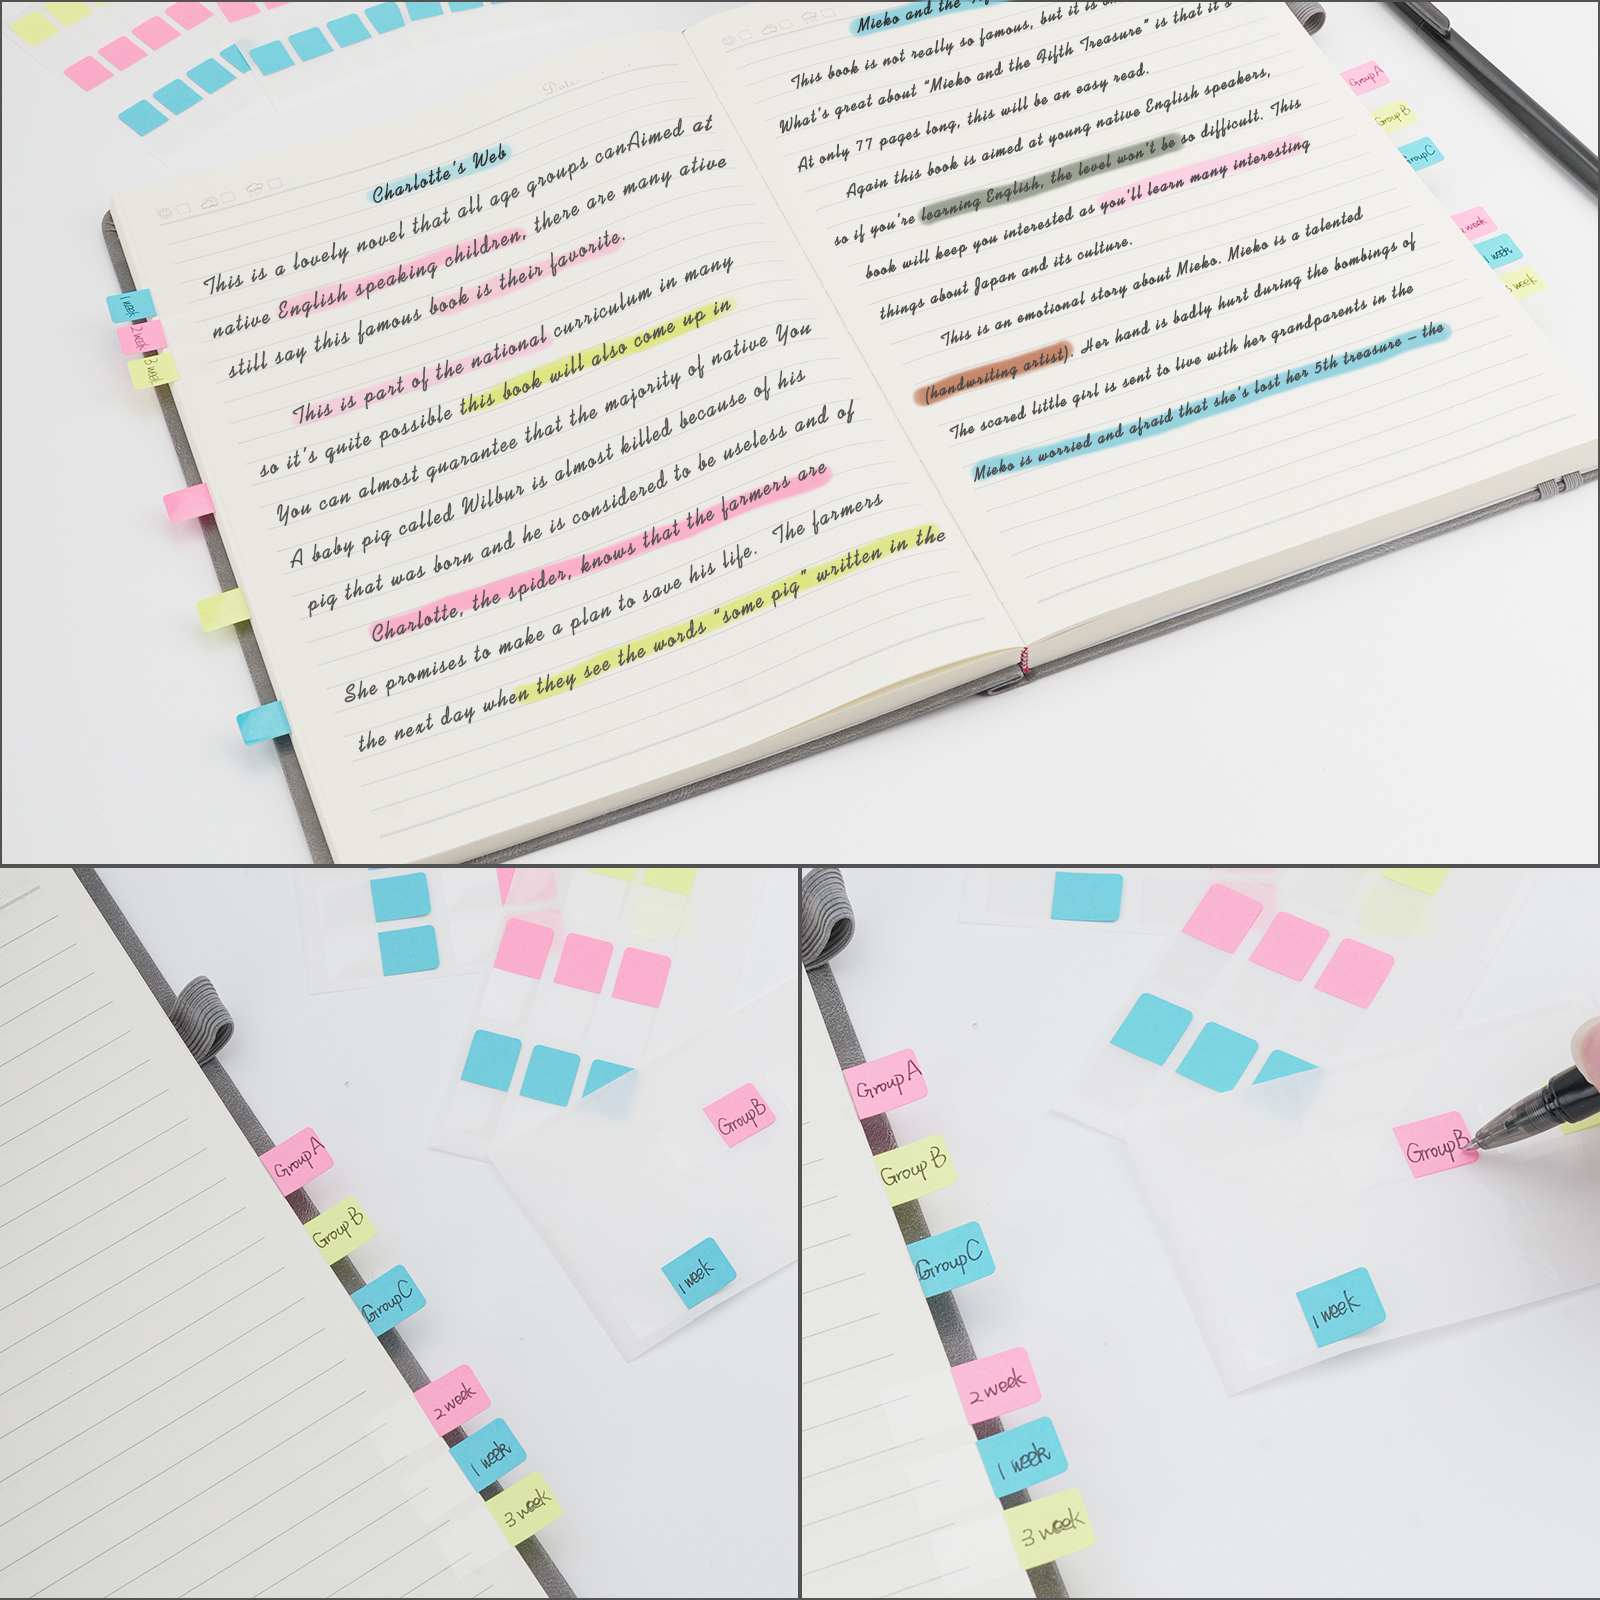 Date:
Charlotte's Web
This is a lovely novel that all age groups canAimed at
native English speaking children, there are many ative
still say this famous book is their favorite.
This is part of the national curriculum in many
so it's quite possible this book will also come up in
You can almost guarantee that the majority of native You
A baby pig called Wilbur is almost killed because of his
pig that was born and he is considered to be useless and of
Charlotte, the spider, knows that the farmers are
She promises to make a plan to save his life. The farmers
the next day when they see the words "some pig" written in the
1 week
2 week
3 week
Mieko and the
This book is not really so famous, but it is
What's great about "Mieko and the Fifth Treasure" is that it's
At only 77 pages long, this will be an easy read.
Again this book is aimed at young native English speakers,
so if you're learning English, the level won't be so difficult. This
book will keep you interested as you'll learn many interesting
things about Japan and its culture.
This is an emotional story about Mieko. Mieko is a talented
(handwriting artist). Her hand is badly hurt during the bombings of
The scared little girl is sent to live with her grandparents in the
Mieko is worried and afraid that she's lost her 5th treasure – the
Group A
Group B
Group C
2 week
1 week
3 week
Group A
Group B
Group C
2 week
1 week
3 week
Group B
1 week
Group A
Group B
Group C
2 week
1 week
3 week
Group B
1 week